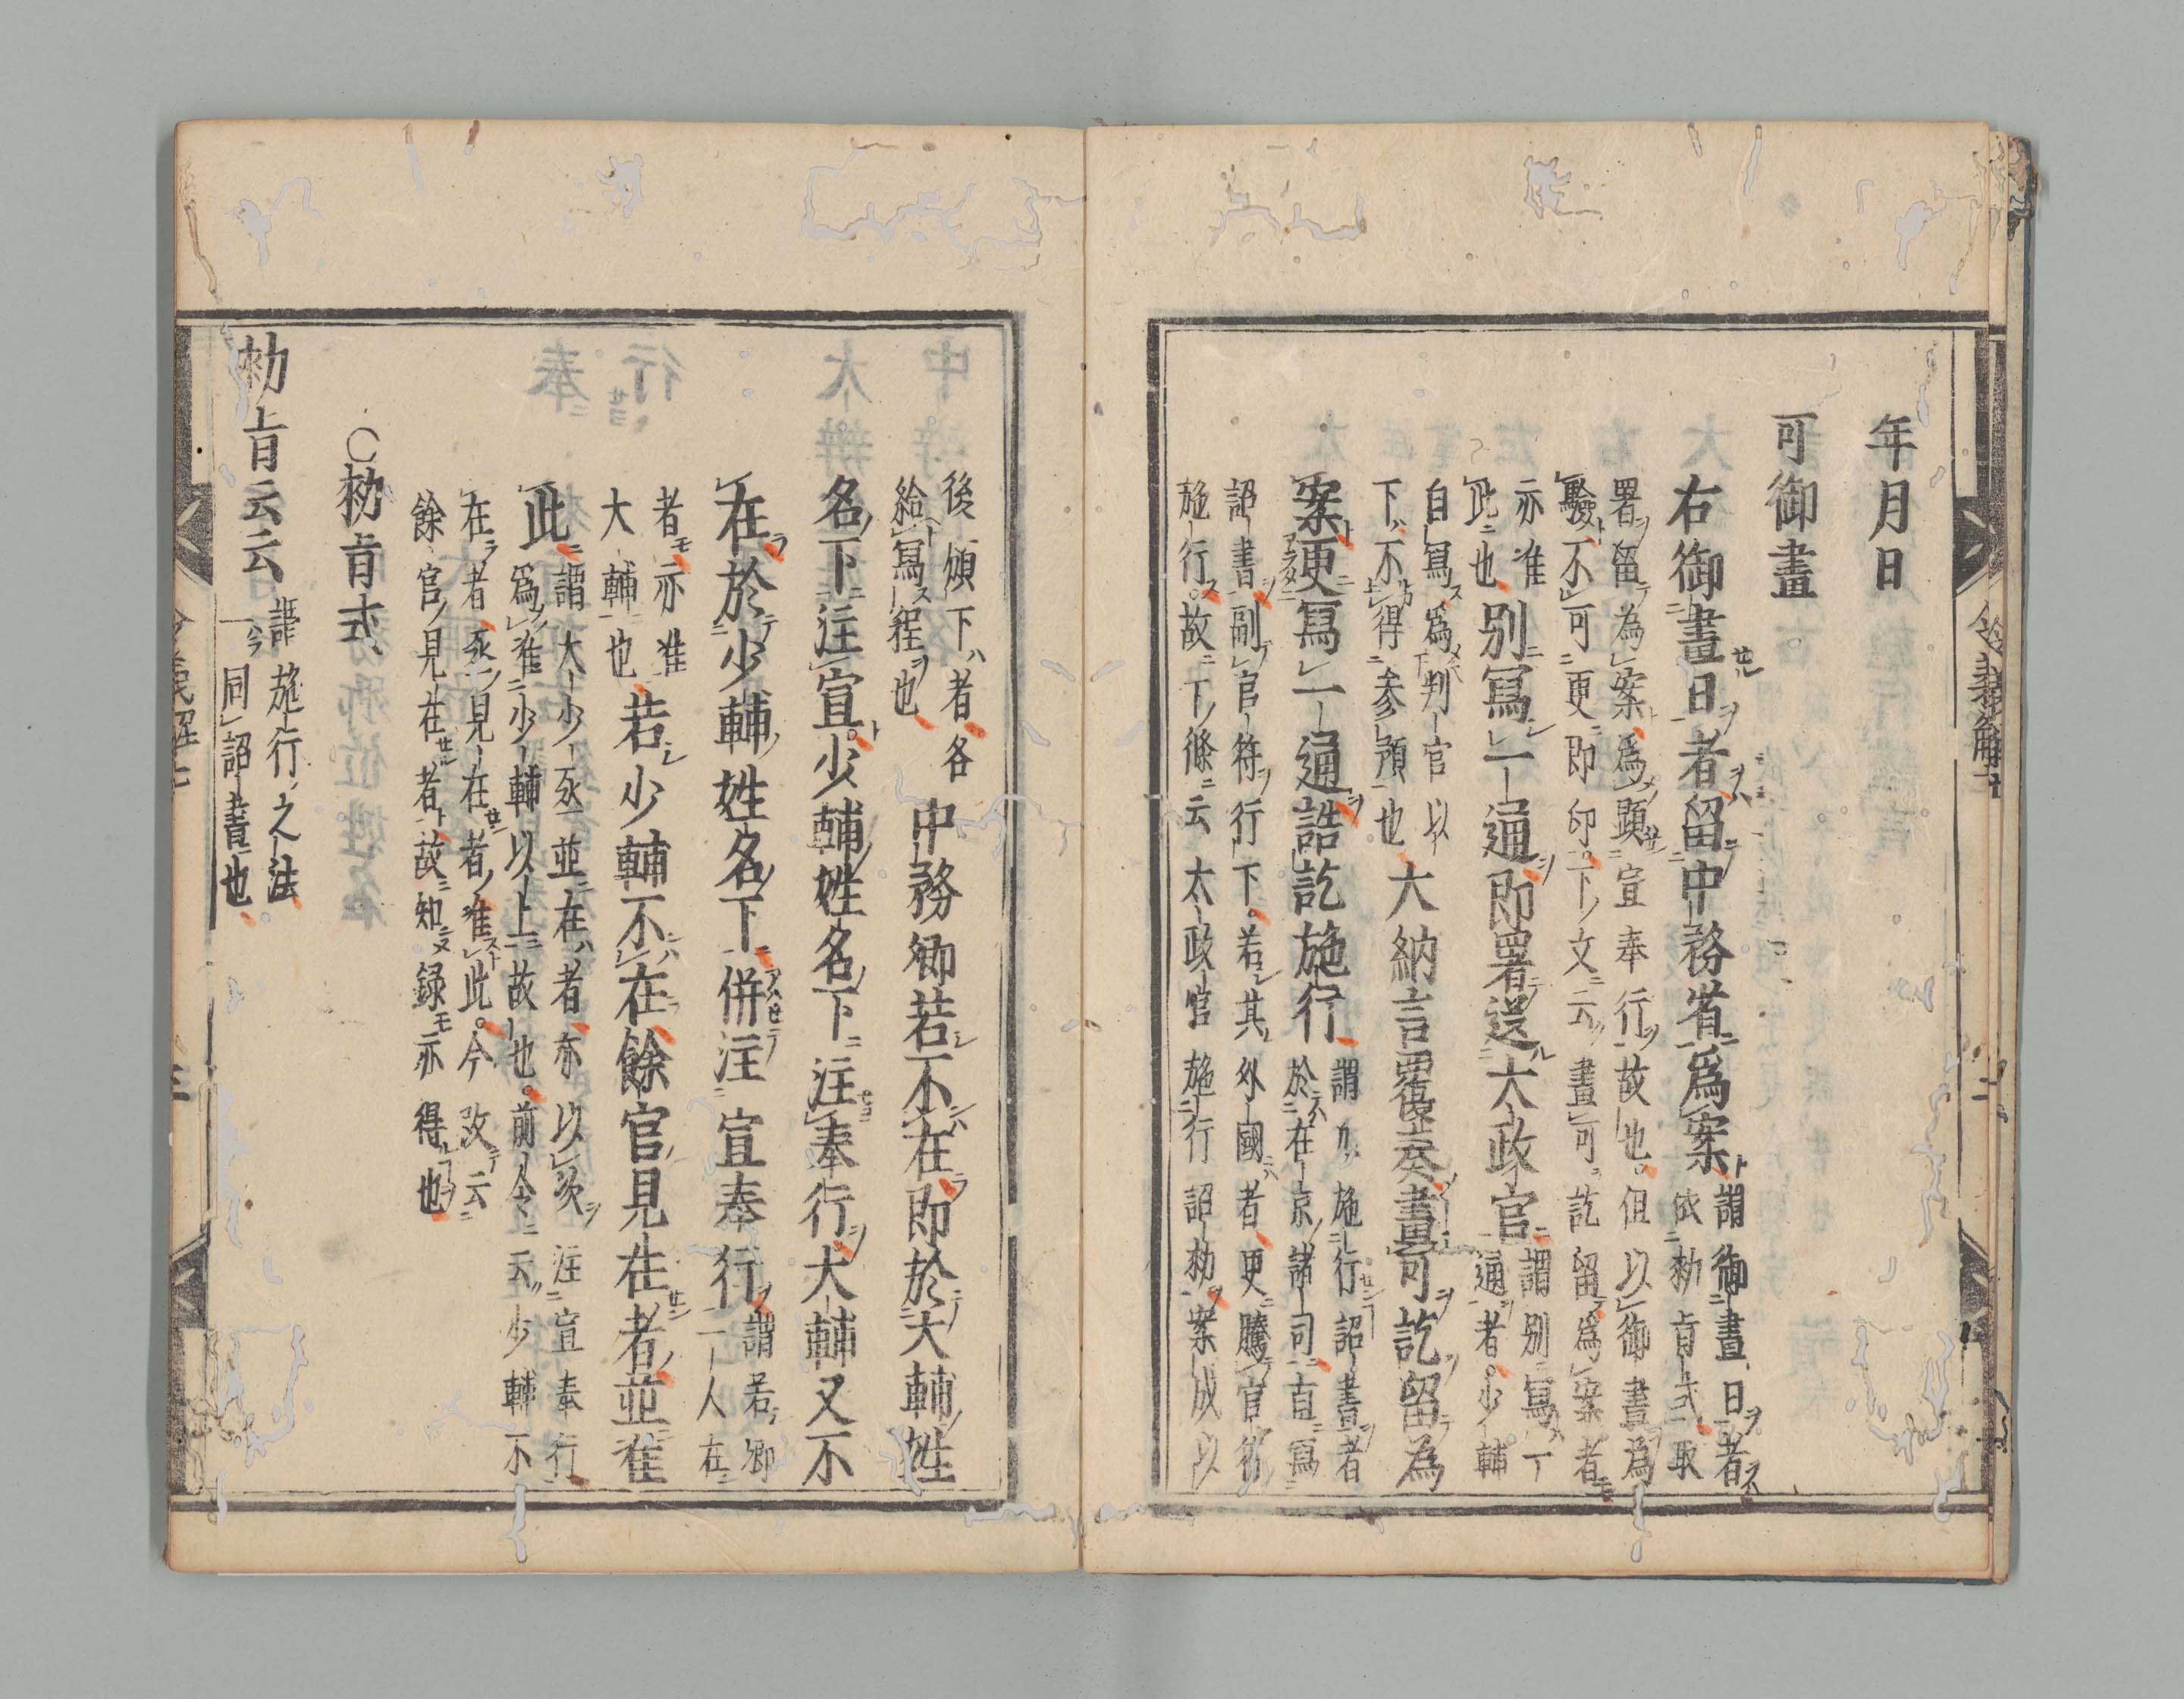 年月日
可御畫
右御畫日者留中務省爲案謂御畫日者
依勅旨式取
署留為案爲顯宣奉行故也但以御畫爲
驗不可更即印下文云畫可訖留爲案者
亦准
此也
別寫一通即署送太政官謂別寫一
通者少輔
自寫爲判官以
下不得参預也
大納言覆奏畫可訖留為
案更寫一通誥訖施行謂施行詔書者
於在京諸司直寫
詔書副官符行下若其外國者更騰官符
施行故下條云太政官施行詔勅案成以
後頒下者各
給寫程也
中務卿若不在即於大輔姓
名下注宣少輔姓名下注奉行大輔又不
在於少輔姓名下併注宣奉行謂若卿
一人在
者亦准
大輔也
若少輔不在餘官見在者並准
此謂大少丞並在者亦以次注宣奉行
爲准少輔以上故也前人云少輔不
在者丞見在者准此今改云
餘官見在者故知録亦得也
○勅旨式
勅旨云云謂施行之法
一同詔書也
令義解七